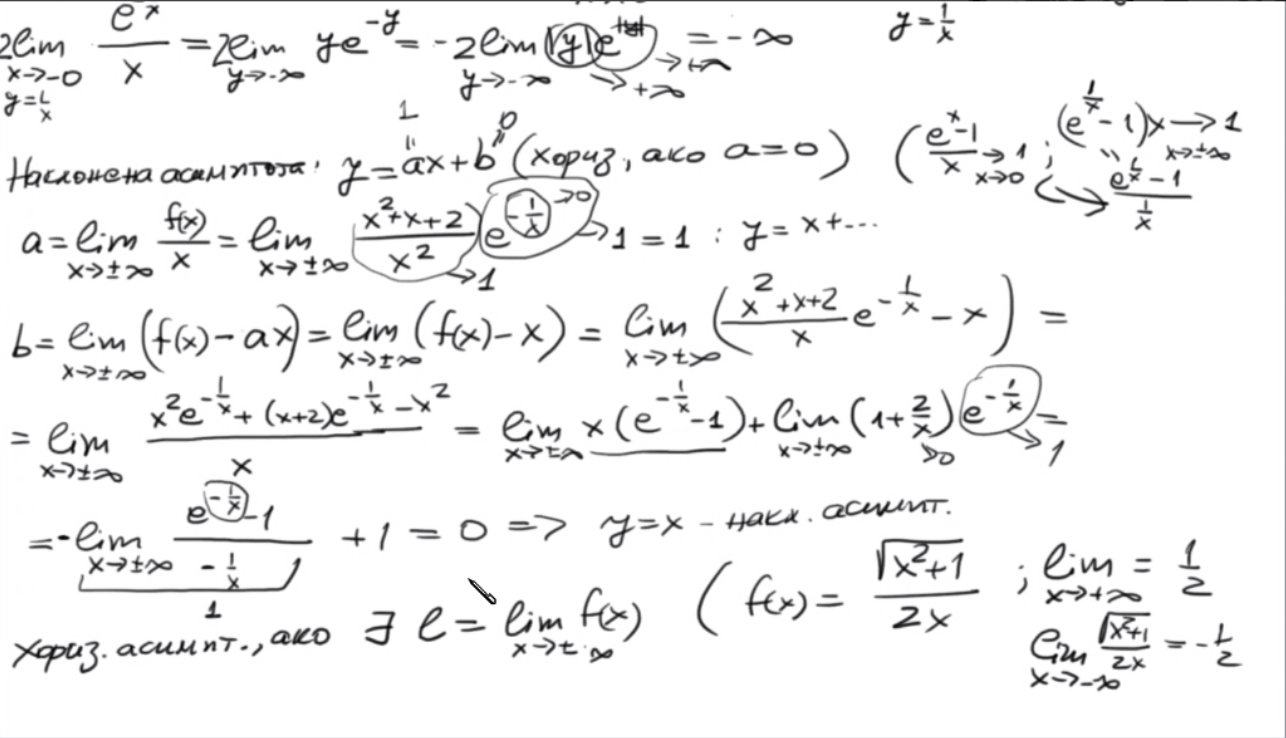 2lim_{x→-0} e^x/x = 2lim_{y→-∞} ye^{-y} = -2lim_{y→-∞} |y|e^{|y|} = -∞ y = 1/x
y = 1/x →+∞ →+∞
Наклонена асимптота: y = ax+b (хориз, ако a=0) ( (e^x-1)/x →1 x→0 ; (e^{1/x}-1)x → 1 x→±∞
1 " 0 " " (e^{1/x}-1)/(1/x)
a = lim_{x→±∞} f(x)/x = lim_{x→±∞} (x²+x+2)/x² e^{-1/x} →0 →1 = 1 : y = x+...
→1
b = lim_{x→±∞} (f(x)-ax) = lim_{x→±∞} (f(x)-x) = lim_{x→±∞} ((x²+x+2)/x e^{-1/x} - x) =
= lim_{x→±∞} (x²e^{-1/x} + (x+2)e^{-1/x} - x²)/x = lim_{x→±∞} x(e^{-1/x}-1) + lim_{x→±∞} (1+2/x) e^{-1/x} =
→0 →1
= -lim_{x→±∞} (e^{-1/x}-1)/(-1/x) + 1 = 0 => y=x - накл. асимпт.
1
хориз. асимпт., ако ∃ l = lim_{x→±∞} f(x) ( f(x) = √(x²+1)/2x ; lim_{x→+∞} = 1/2
lim_{x→-∞} √(x²+1)/2x = -1/2